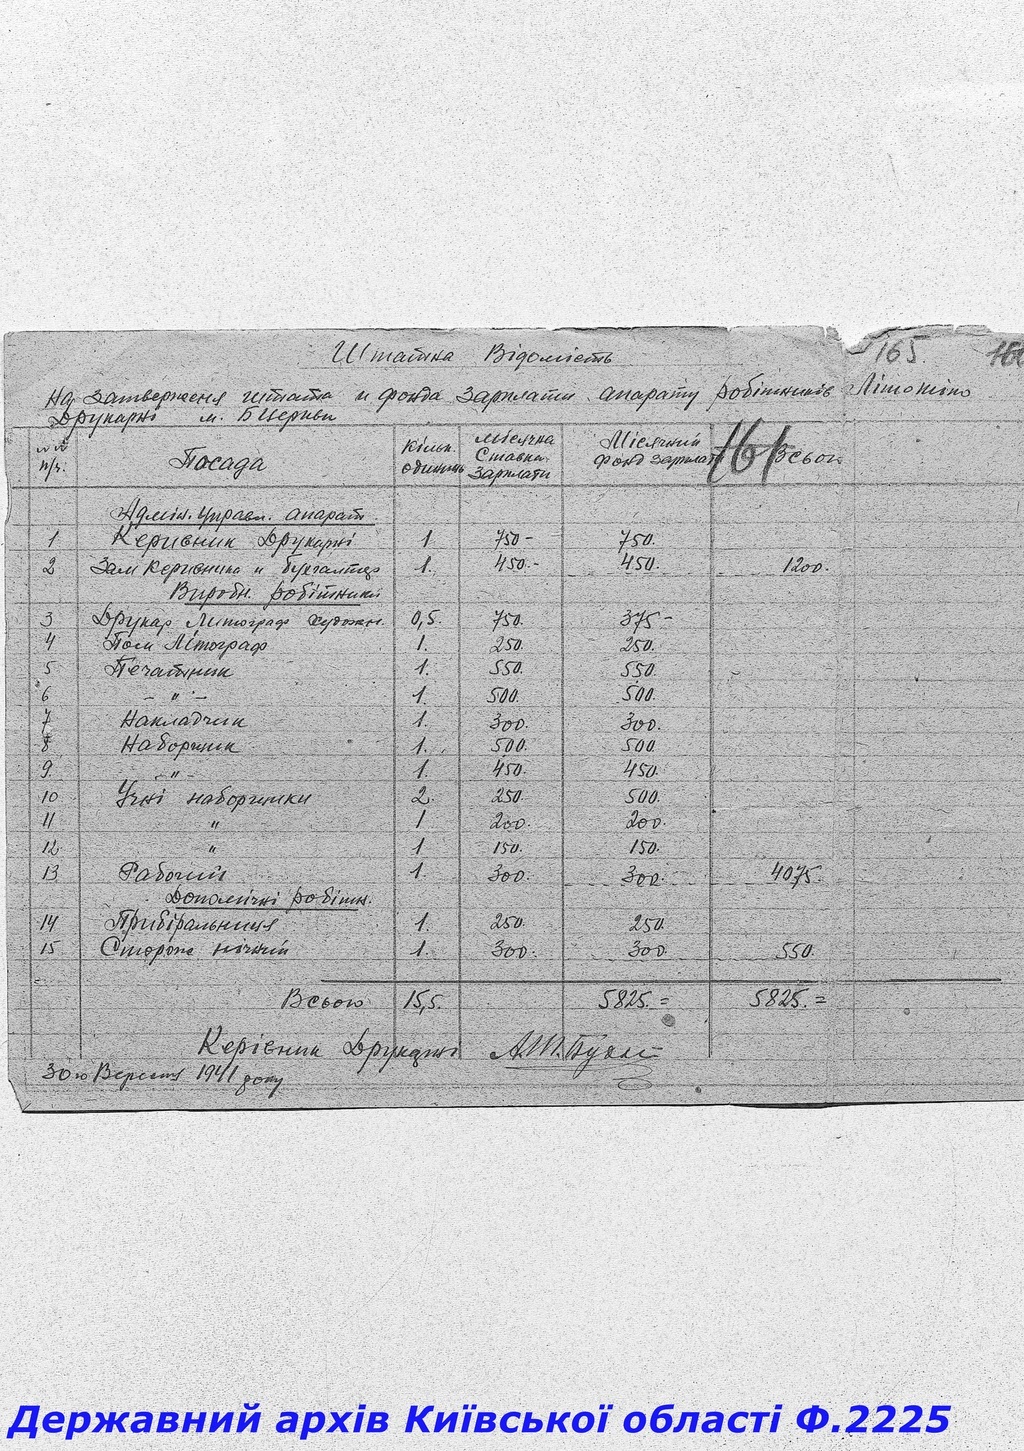 165.
Штатна Відомість
На Затверженя штата и фонда Зарплати апарату робітників Літотипо
Друкарні м. БЦеркви
№№ п/ч. Посада Кільк. одиниць Місячна Ставка Зарплати Місячний Фонд Зарплати 161 Всього
Адмін. управл. апарат
1 Керивник Друкарні 1 750- 750.
2 Зам Керивника и бухгалтер 1. 450.- 450. 1200.
Виробн. робітники
3 Друкар Литограф художн. 0,5. 750. 375-
4 Пом Літограф 1. 250. 250.
5 Печатник 1. 550. 550.
6 - " - 1. 500. 500.
7 Накладчик 1. 300. 300.
8 Наборщик 1. 500. 500.
9. - " - 1. 450. 450.
10 Учні наборщики 2. 250. 500.
11 " 1 200. 200.
12 " 1 150. 150.
13 Рабочий 1. 300. 300. 4075.
Допомічні робітн.
14 Прибіральниця 1. 250. 250.
15 Сторож нічний 1. 300. 300. 550.
Всього 15,5. 5825.= 5825.=
Керівник Друкарні
30го Вересня 1941 року
Державний архів Київської області Ф.2225